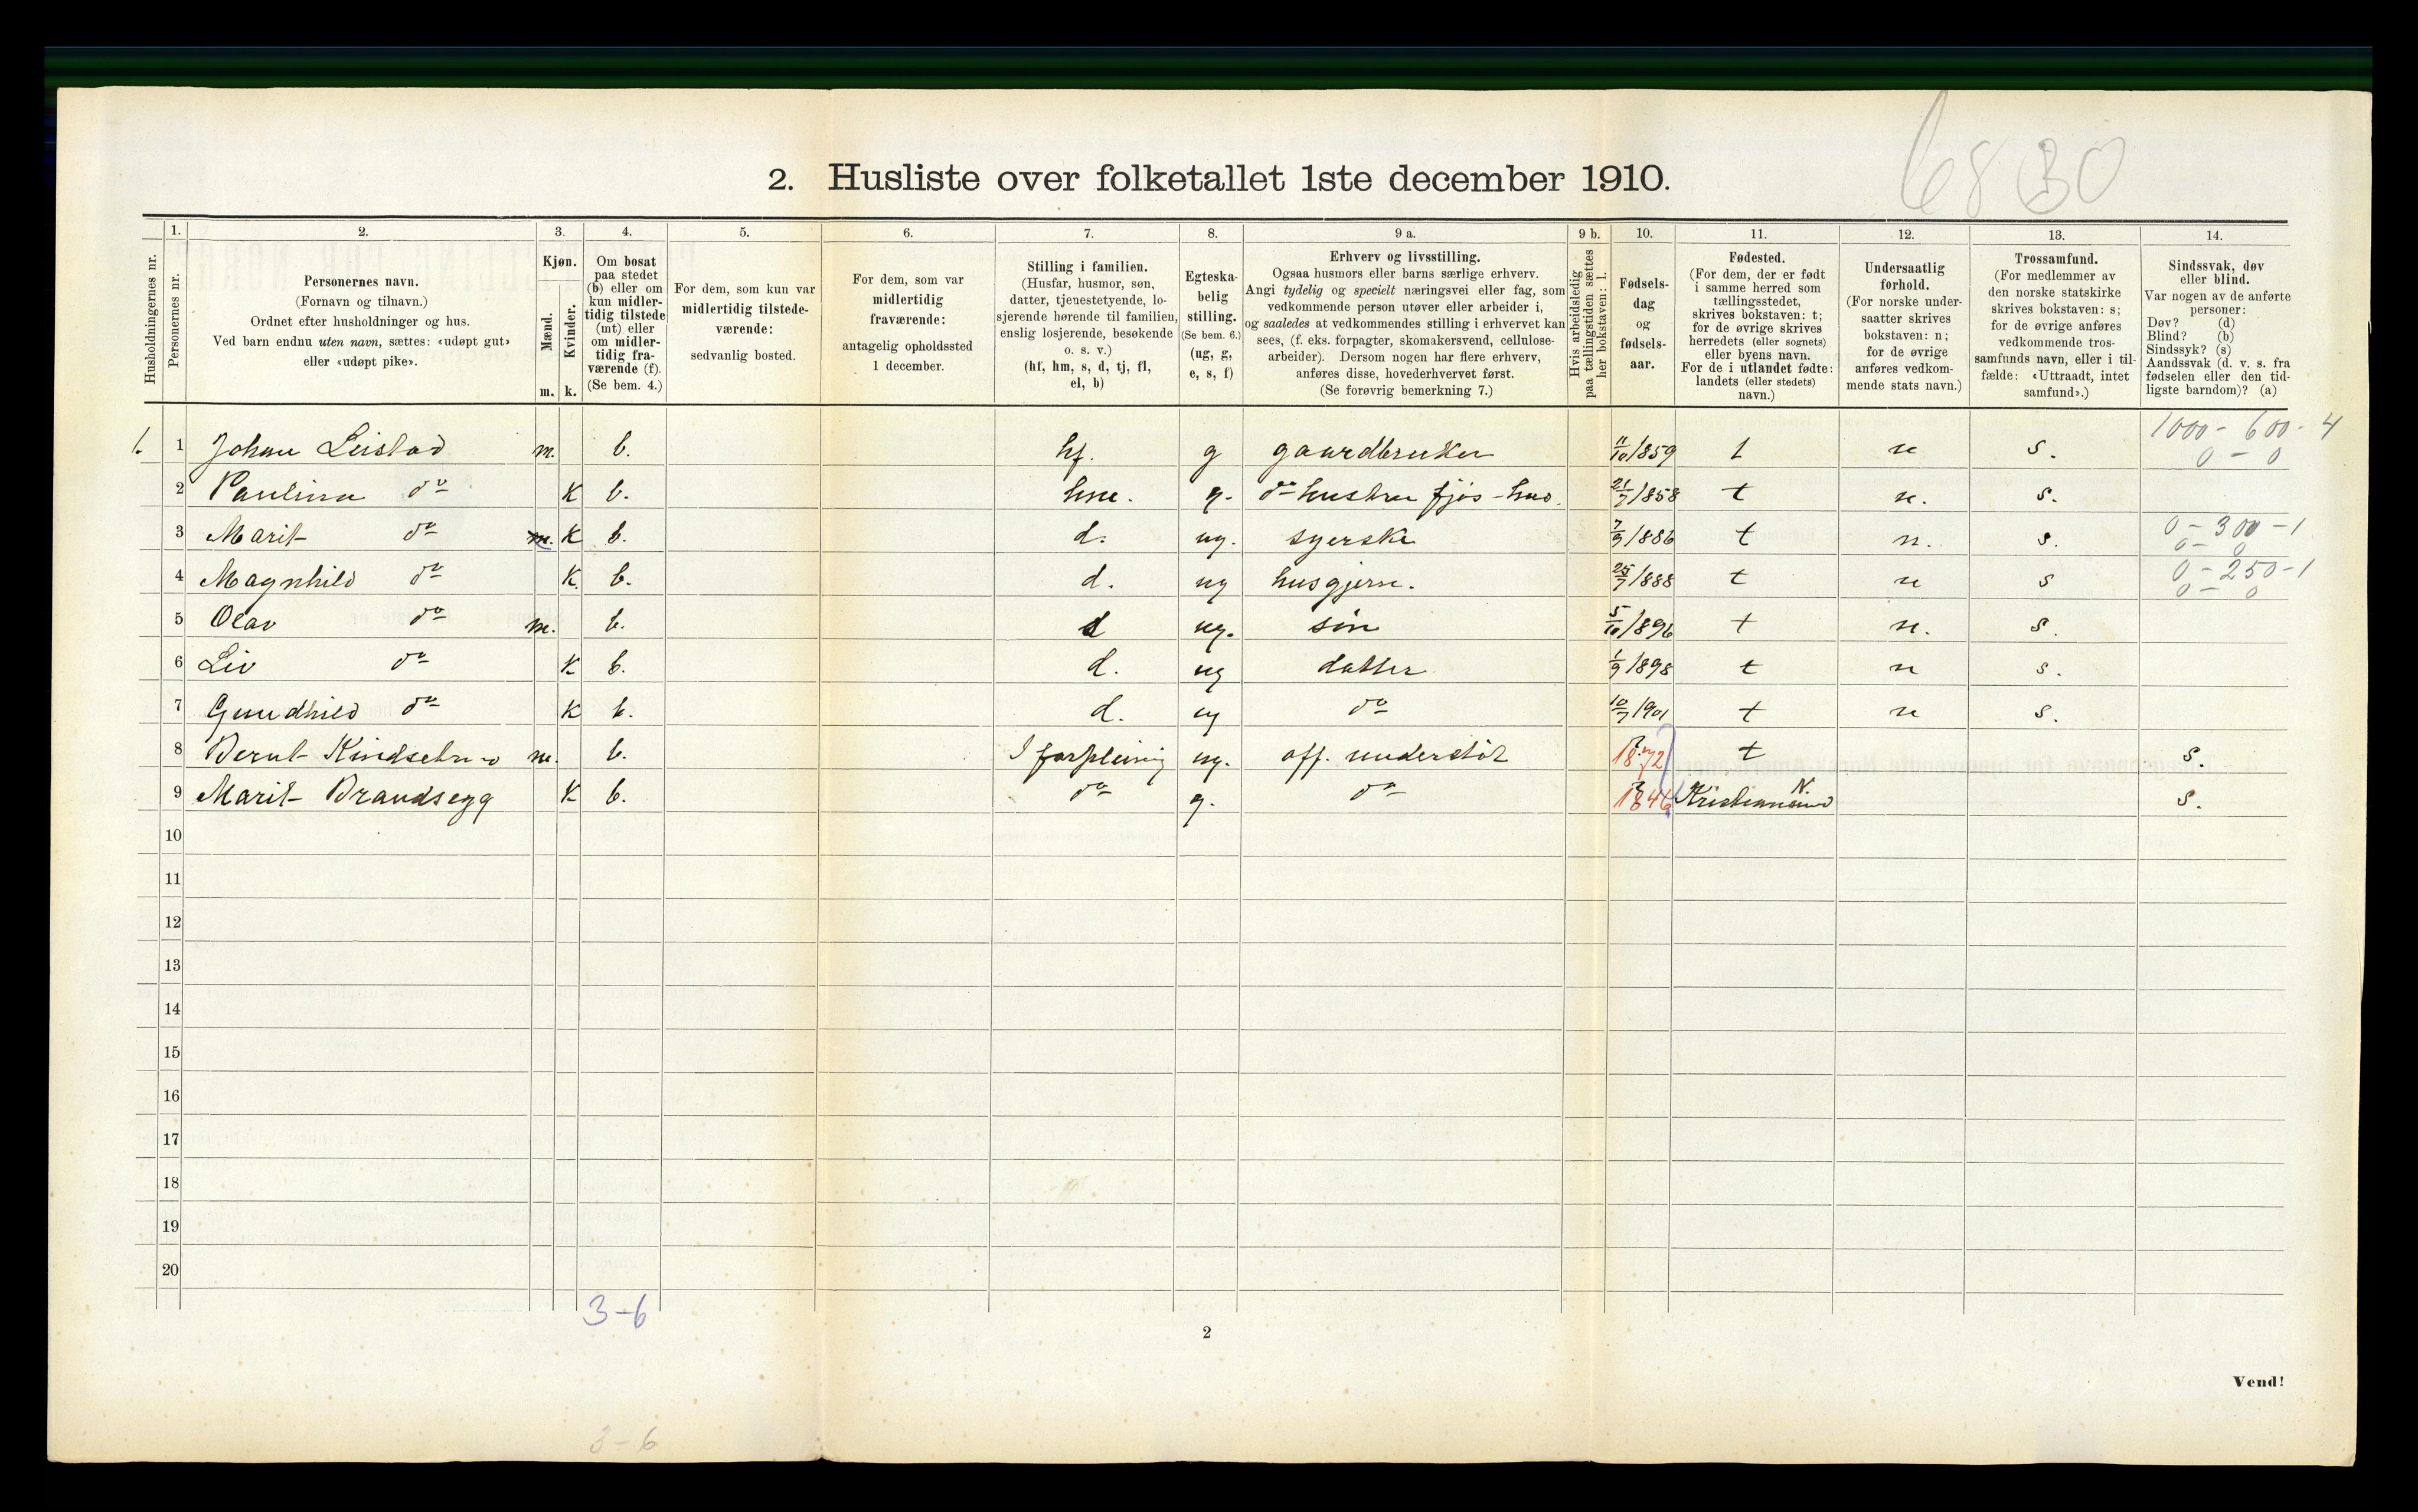 6830
2. Husliste over folketallet 1ste december 1910.
Husholdningernes nr.
1. Personernes nr.
2. Personernes navn.
(Fornavn og tilnavn.)
Ordnet efter husholdninger og hus.
Ved barn endnu uten navn, sættes: «udøpt gut»
eller «udøpt pike».
3. Kjøn.
Mænd. m.
Kvinder. k.
4. Om bosat
paa stedet
(b) eller om
kun midler-
tidig tilstede
(mt) eller
om midler-
tidig fra-
værende (f).
(Se bem. 4.)
5. For dem, som kun var
midlertidig tilstede-
værende:
sedvanlig bosted.
6. For dem, som var
midlertidig
fraværende:
antagelig opholdssted
1 december.
7. Stilling i familien.
(Husfar, husmor, søn,
datter, tjenestetyende, lo-
sjerende hørende til familien,
enslig losjerende, besøkende
o. s. v.)
(hf, hm, s, d, tj, fl,
el, b)
8. Egteska-
belig
stilling.
(Se bem. 6.)
(ug, g,
e, s, f)
9 a. Erhverv og livsstilling.
Ogsaa husmors eller barns særlige erhverv.
Angi tydelig og specielt næringsvei eller fag, som
vedkommende person utøver eller arbeider i,
og saaledes at vedkommendes stilling i erhvervet kan
sees, (f. eks. forpagter, skomakersvend, cellulose-
arbeider). Dersom nogen har flere erhverv,
anføres disse, hovederhvervet først.
(Se forøvrig bemerkning 7.)
9 b. Hvis arbeidsledig
paa tællingstiden sættes
her bokstaven: l.
10. Fødsels-
dag
og
fødsels-
aar.
11. Fødested.
(For dem, der er født
i samme herred som
tællingsstedet,
skrives bokstaven: t;
for de øvrige skrives
herredets (eller sognets)
eller byens navn.
For de i utlandet fødte:
landets (eller stedets)
navn.)
12. Undersaatlig
forhold.
(For norske under-
saatter skrives
bokstaven: n;
for de øvrige
anføres vedkom-
mende stats navn.)
13. Trossamfund.
(For medlemmer av
den norske statskirke
skrives bokstaven: s;
for de øvrige anføres
vedkommende tros-
samfunds navn, eller i til-
fælde: «Uttraadt, intet
samfund».)
14. Sindssvak, døv
eller blind.
Var nogen av de anførte
personer:
Døv? (d)
Blind? (b)
Sindssyk? (s)
Aandssvak (d. v. s. fra
fødselen eller den tid-
ligste barndom)? (a)
1. 1 Johan Leistad m. b. hf. g gaardbruker 11/10 1859 t n s. 1000 - 600 - 4
0 - 0
2 Paulina do K b. hm. g. do hustru fjøs- 21/7 1858 t n. s.
3 Marit do m. K b. d. ug. syerske 7/9 1886 t n. s. 0 - 300 - 1
0 - 0
4 Magnhild do K b. d. ug husgjern. 25/7 1888 t n s 0 - 250 - 1
0 - 0
5 Olav do m. b. s ug. søn 5/10 1896 t n. s.
6 Liv do K b. d. ug datter 1/9 1898 t n s.
7 Gundhild do K b. d. ug do 10/7 1901 t n s.
8 Bernt m. b. I forpleining ug. off. understøt 1872 t s.
9 Marit Brandsegg K b. do g. do 1846 Kristiansund N. s.
10
11
12
13
14
15
16
17
18
19
20
3-6
2
Vend!
3-6